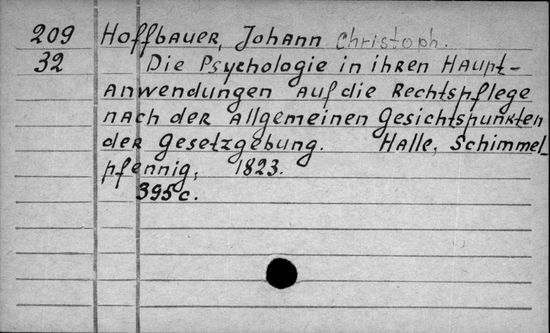 209 Hoffbauer, Johann Christoph.
32 Die Psychologie in ihren Haupt-
Anwendungen auf die Rechtspflege
nach der allgemeinen Gesichtspunkten
der Gesetzgebung. Halle, Schimmel-
pfennig, 1823.
395c.